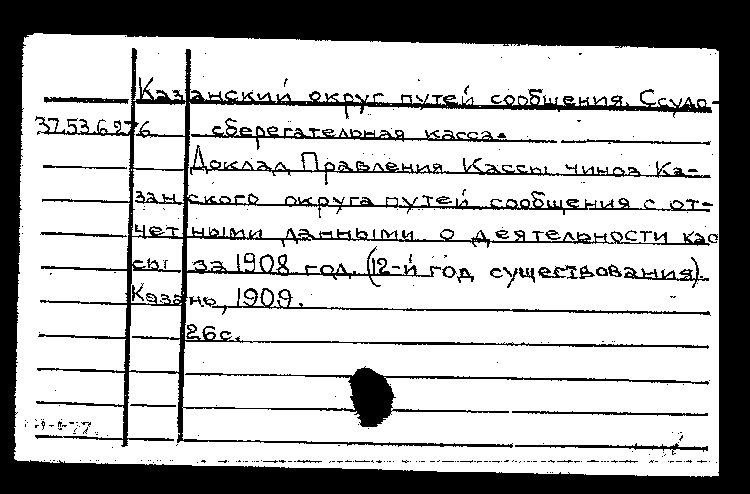 Казанский округ путей сообщения. Ссудо-
37.53.6.276 сберегательная касса.
Доклад Правления Кассы чинов Ка-
занского округа путей сообщения с от-
четными данными о деятельности кас
сы за 1908 год. (12-й год существования).
Казань, 1909.
26с.